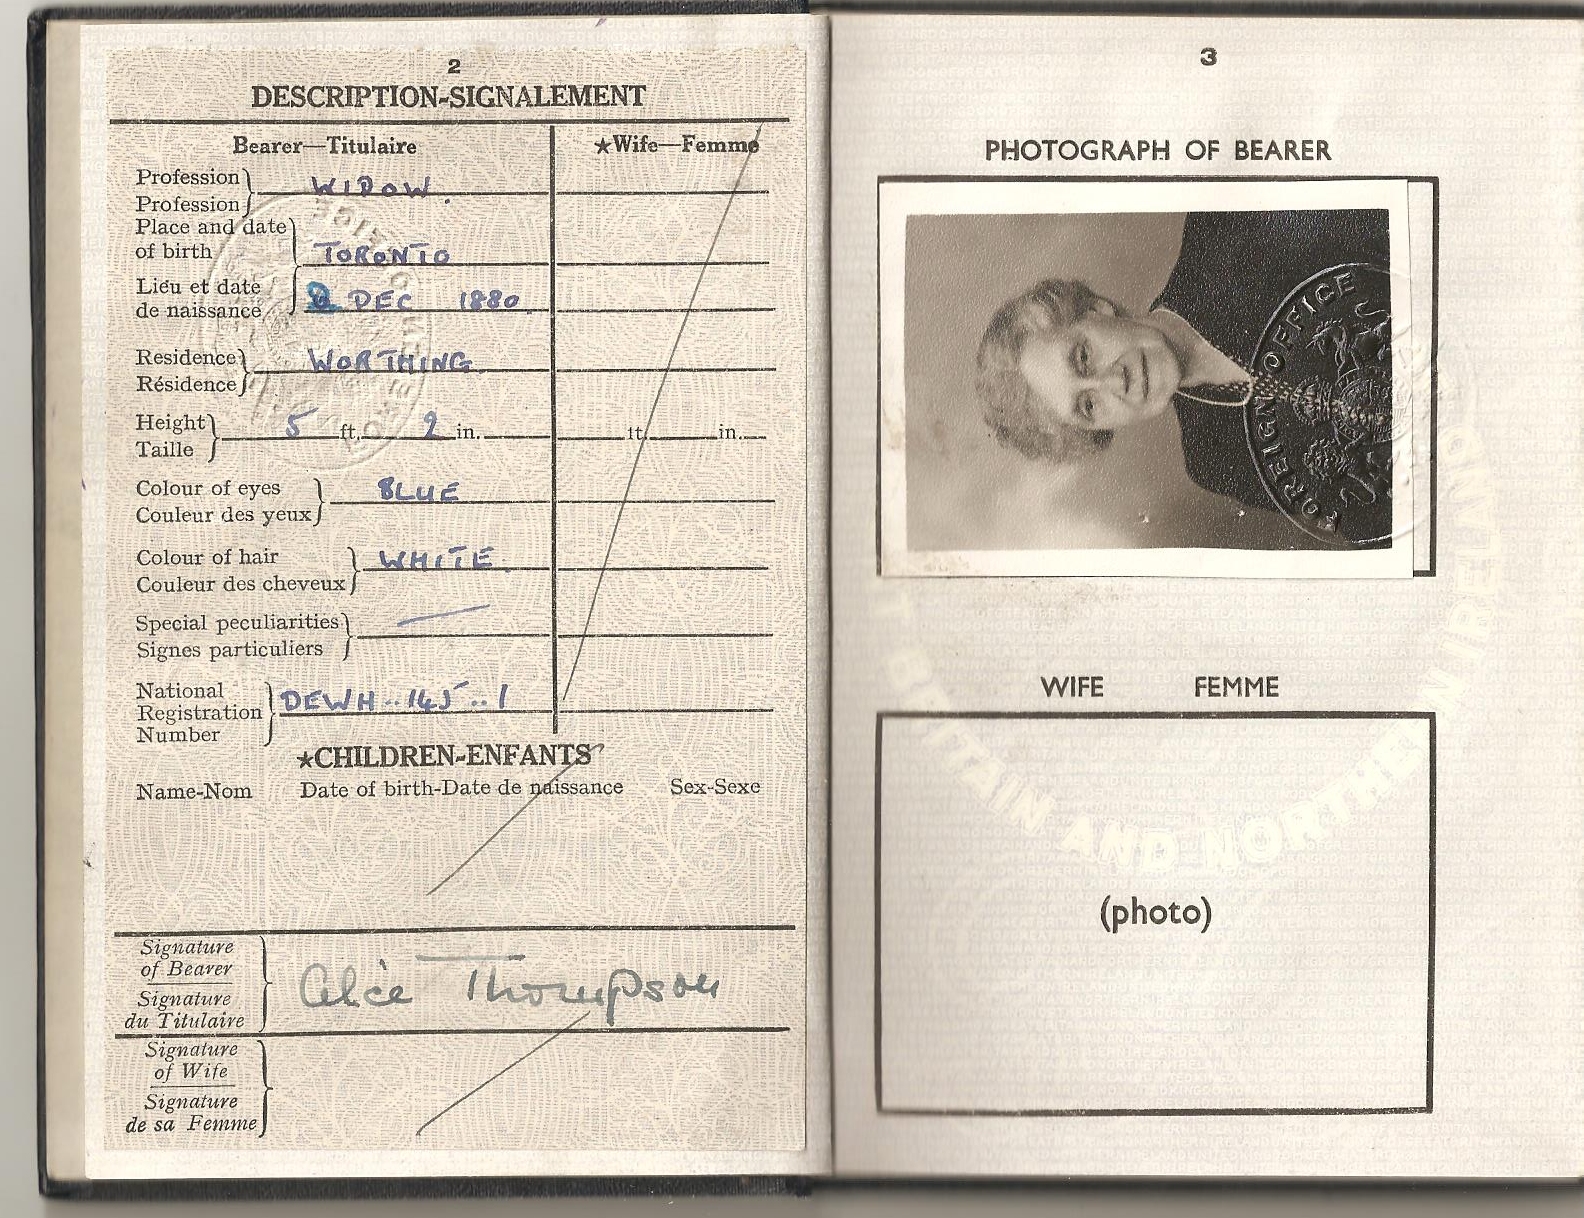 2
DESCRIPTION-SIGNALEMENT
Bearer—Titulaire
★Wife—Femme
Profession
Profession
WIDOW.
Place and date
of birth
TORONTO
Lieu et date
de naissance
DEC 1880.
Residence
Résidence
WORTHING.
Height
Taille
5 ft. 2 in.
ft. in.
Colour of eyes
Couleur des yeux
BLUE
Colour of hair
Couleur des cheveux
WHITE.
Special peculiarities
Signes particuliers
National
Registration
Number
DEWH..145..1
★CHILDREN-ENFANTS
Name-Nom Date of birth-Date de naissance Sex-Sexe
Signature
of Bearer
Signature
du Titulaire
Alice Thompson
Signature
of Wife
Signature
de sa Femme
3
PHOTOGRAPH OF BEARER
FOREIGN OFFICE
WIFE FEMME
(photo)
BRITAIN AND NORTHERN IRELAND